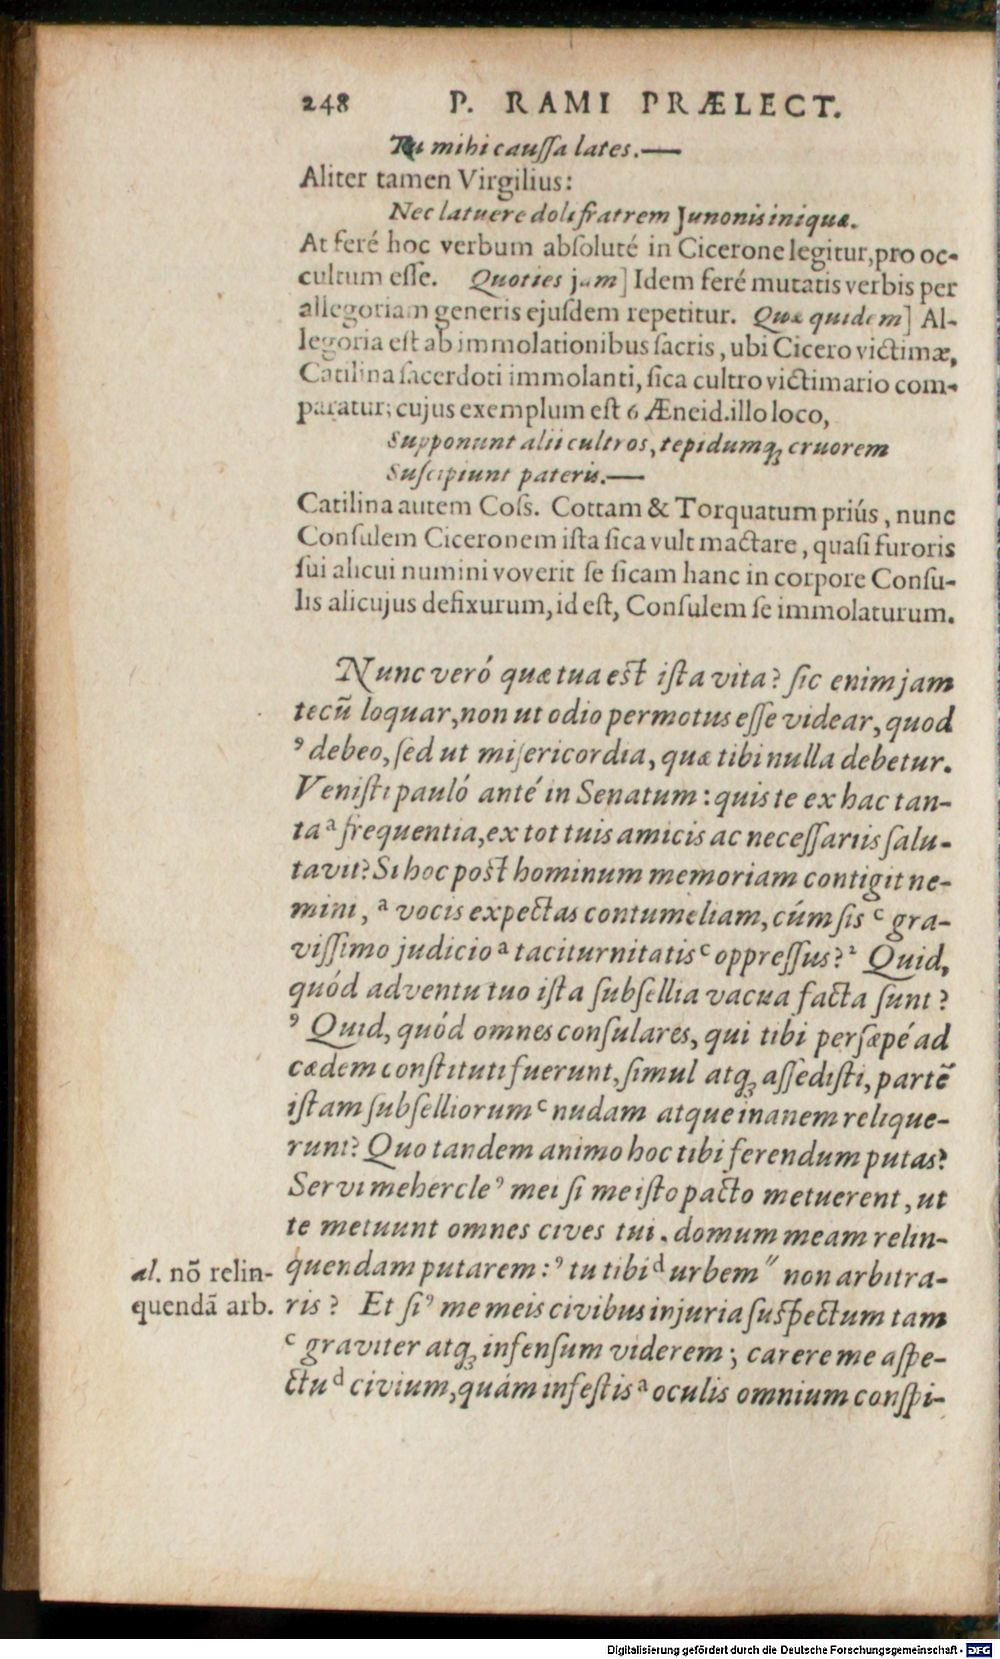 248 P. RAMI PRÆLECT.
Tu mihi cauſſa lates.—
Aliter tamen Virgilius:
Nec latuere doli fratrem Junonis iniquæ.
At feré hoc verbum abſoluté in Cicerone legitur, pro oc-
cultum eſſe. Quoties jam] Idem feré mutatis verbis per
allegoriam generis ejuſdem repetitur. Quæ quidem] Al-
legoria eſt ab immolationibus ſacris, ubi Cicero victimæ,
Catilina ſacerdoti immolanti, ſica cultro victimario com-
paratur; cujus exemplum eſt 6 Æneid. illo loco,
Supponunt alii cultros, tepidumq́; cruorem
Suſcipiunt pateris.—
Catilina autem Coſs. Cottam & Torquatum priús, nunc
Conſulem Ciceronem iſta ſica vult mactare, quaſi furoris
ſui alicui numini voverit ſe ſicam hanc in corpore Conſu-
lis alicujus defixurum, id eſt, Conſulem ſe immolaturum.
Nunc veró quæ tua est iſta vita? ſic enim jam
tecũ loquar, non ut odio permotus eſſe videar, quod
⁹ debeo, ſed ut miſericordia, quæ tibi nulla debetur.
Veniſti pauló anté in Senatum: quis te ex hac tan-
ta ᵃ frequentia, ex tot tuis amicis ac neceſſariis ſalu-
tavit? Si hoc post hominum memoriam contigit ne-
mini, ᵃ vocis expectas contumeliam, cúm ſis ᶜ gra-
viſſimo judicio ᵃ taciturnitatis ᶜ oppreſſus? ² Quid,
quód adventu tuo iſta ſubſellia vacua facta ſunt?
⁹ Quid, quód omnes conſulares, qui tibi perſæpé ad
cædem conſtituti fuerunt, ſimul atq́; aſſediſti, partẽ
iſtam ſubſelliorum ᶜ nudam atque inanem relique-
runt? Quo tandem animo hoc tibi ferendum putas?
Servi mehercle ⁹ mei ſi me iſto pacto metuerent, ut
te metuunt omnes cives tui. domum meam relin-
al. nõ relin- quendam putarem: ⁹ tu tibi ᵈ urbem ″ non arbitra-
quendã arb. ris? Et ſi ⁹ me meis civibus injuria ſuſpectum tam
ᶜ graviter atq́; infenſum viderem; carere me aſpe-
ctu ᵈ civium, quám infeſtis ᵃ oculis omnium conſpi-
Digitalisierung gefördert durch die Deutsche Forschungsgemeinschaft - DFG